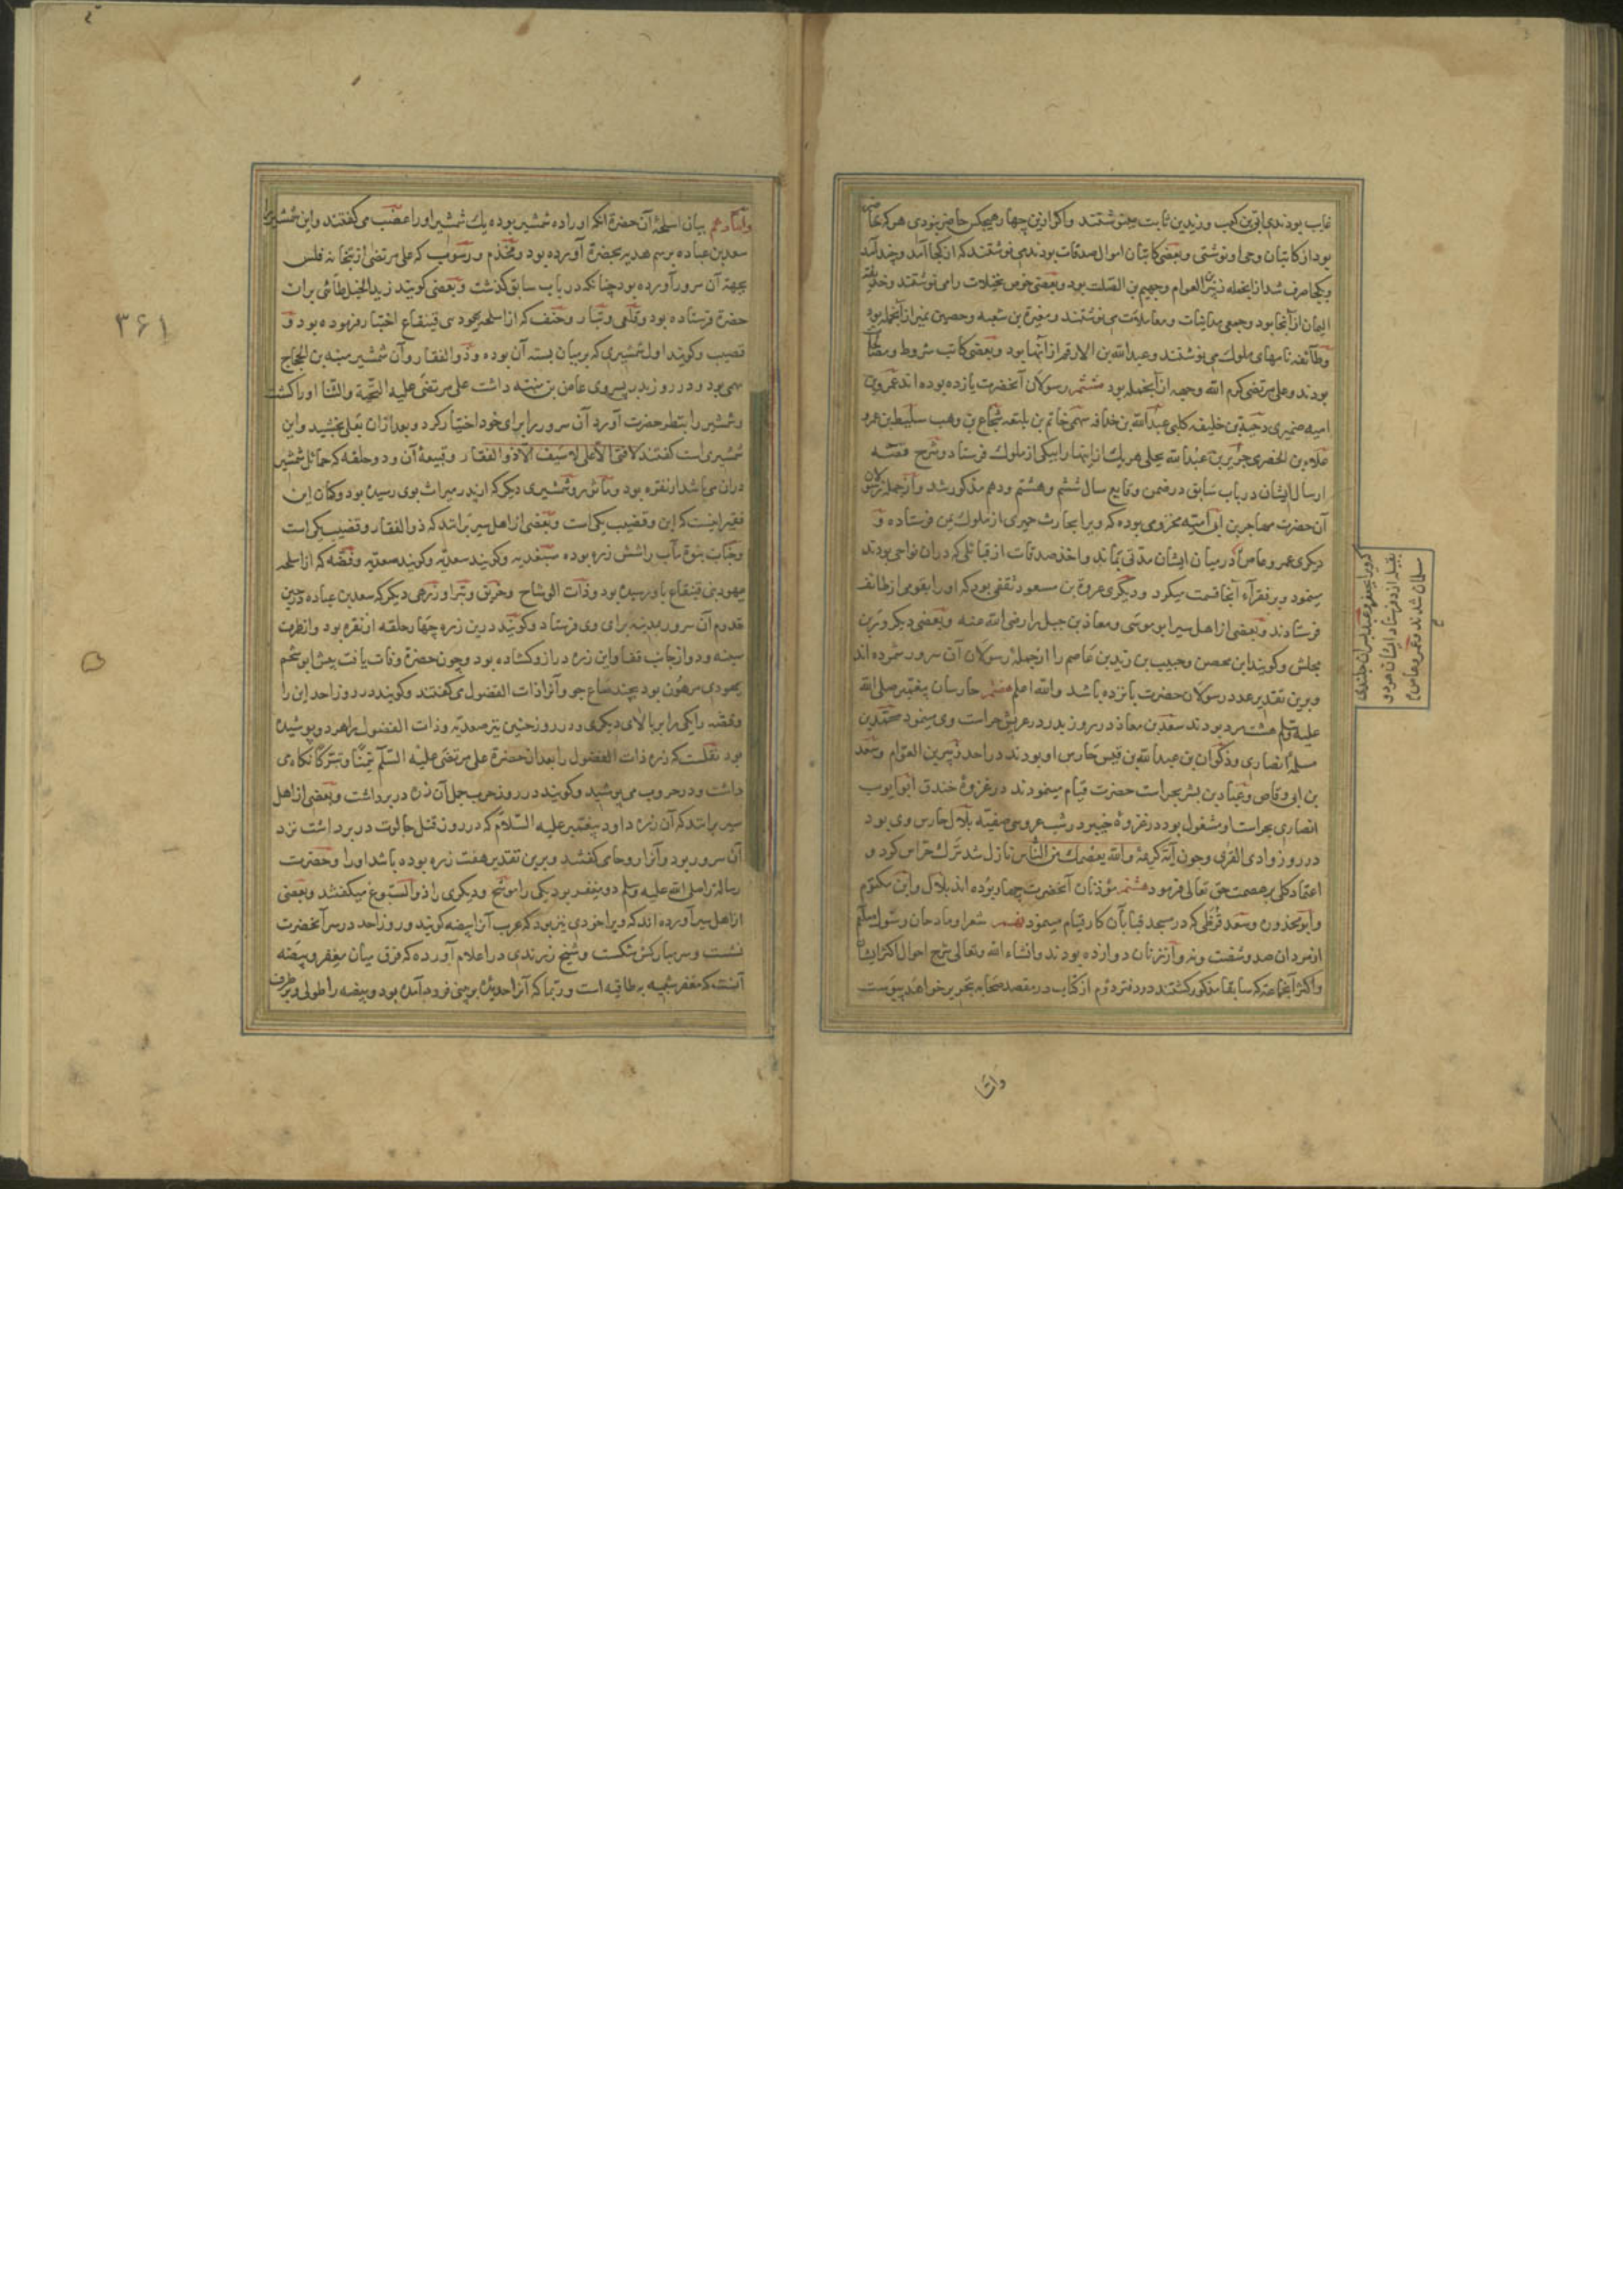 غایب بودندی ابی بن کعب و زید بن ثابت می‌نوشتند و اکر ازین چهار هیچکس حاضر نبودی هر که حاضر
بود از کاتبان وحی او نوشتی و بعضی کاتبان اموال صدقات بودند می نوشتند که از کجا آمد و چند آمد
و بکجا صرف شد از انجمله زبیر بن العوام و جهیم بن الصلت بود و بعضی خرص نخیلات را می نوشتند و حذیفه
الیمان از آنها بود و جمعی مداینات و معاملات می نوشتند و مغیرة بن شعبه و حصین نمیر از آنجمله بود
و طایفه نامهای ملوک می نوشتند و عبدالله بن الارقم از آنها بود و بعضی کاتب شروط و مصالحات
بودند و علی مرتضی کرم الله وجهه از آنجمله بود ششم رسولان آنحضرت یازده بوده اند عمرو بن
امیه ضمیری دحیة بن خلیفه کلبی عبدالله بن حذافه سهمی حاتم بن بلتعه شجاع بن وهب سلیط بن عمرو
علاء بن الحضرمی جریر بن عبدالله بجلی هر یک از اینها را بیکی از ملوک فرستاد و شرح قصه
ارسال ایشان در باب سابق در ضمن وقایع سال ششم و هشتم و دهم مذکور شد و از جمله رسولان
آن حضرت مهاجر بن ابی امیه مخزومی بوده که ویرا بحارث حمیری از ملوک یمن فرستاده و
دیکری عمرو عاص در میان ایشان مدتی بماند و اخذ صدقات از قبائلی که دران نواحی بودند
مینمود و بر فقراء آنجا قسمت میکرد و دیکری عروة بن مسعود ثقفی بود که او را بقومی از طائف
فرستادند و بعضی از اهل سیر ابو موسی و معاذ بن جبل را رضی الله عنه و بعضی دیکر وبربن
یحلس و کویند ابن محصن و حبیب بن زید بن عاصم را از جمله رسولان آن سرور شمرده اند
و برین تقدیر عدد رسولان حضرت پانزده باشد والله اعلم هفتم حارسان پیغمبر صلی الله
علیه وسلم هشت مرد بودند سعد بن معاذ در روز بدر در عریش حراست وی مینمود محمد بن
مسلمه انصاری و ذکوان بن عبدالله بن قیس حارس او بودند در احد زبیر بن العوام و سعد
بن ابی وقاص و عباد بن بشر بحراست حضرت قیام مینمودند در غزوه خندق ابو ایوب
انصاری بحراست او مشغول بود در غزوه خیبر در شب عروسی صفیه بلال حارس وی بود
در روز وادی القری و چون آیه کریمه والله یعصمک من الناس نازل شد ترک حراس کرد و
اعتماد کلی بر عصمت حق تعالی فرمود هشتم مؤذنان آنحضرت چهار بوده اند بلال و ابن مکتوم
و ابو محذوره و سعد قرظی که در مسجد قبا بآن کار قیام مینمود نهم شعرا و مادحان رسول
از مردان صد و شصت و نه و از زنان دوازده بودند و انشاء الله وتعالی شرح احوال اکثر ایشان
و اکثر آنجماعه که سابقا مذکور کشتند در دفتر دوم از کتاب در مقصد صحابه بتحریر خواهد پیوست
که ویرا بجیفر و عبد پسران جلندی
بقبیله ازد فرستاد ایشان هر دو
مسلمان شدند و عمرو عاص
واما
واما دهم بیان اسلحه آن حضرة انکه او را ده شمشیر بوده یک شمشیر او را عضب می گفتند و این شمشیر را
سعد بن عباده برسم هدیه بحضرة آورده بود و مخذم و رسوب که علی مرتضی از بتخانه فلس
بجهة آن سرور آورده بود چنانکه در باب سابق گذشت و بعضی گویند زید الخیل طائی برای
حضرة فرستاده بود و قلعی و بتار و حتف که از اسلحه یهود بنی قینقاع اختیار فرموده بود و
قضیب و کویند اول شمشیری که بر میان بسته آن بوده و ذوالفقار و آن شمشیر منبه بن الحجاج
سهمی بود و در روز بدر پسر وی عاص بن منبه داشت علی مرتضی علیه التحیة والثنا او را کشت
و شمشیر را بنظر حضرت آورد آن سرور برای خود اختیار کرد و بعد ازان بعلی بخشید و این
شمشیری است کفتند لا فتی الا علی لا سیف الا ذوالفقار و قبیعه آن و دو حلقه که حمائل شمشیر
دران می باشد از نقره بود و مأثور و شمشیری دیکر که از پدر میراث بوی رسیده بود و کمان این
فقیر اینست که این و قضیب یکی است و بعضی از اهل سیر برانند که ذوالفقار و قضیب یکی است
و جناب نبوة مآب را شش زره بوده سغدیه و کویند سعدیه و کویند صعدیه و فضه که از اسلحه
یهود بنی قینقاع باو رسیده بود و ذات الوشاح و خرنق و بترا و زرهی دیکر که سعد بن عباده در حین
قدوم آن سرور بمدینه برای وی فرستاد و کویند درین زره چهار حلقه از نقره بود دو از طرف
سینه و دو از جانب قفا و این زره دراز و کشاده بود و چون حضرة وفات یافت پیش ابو شحم
یهودی مرهون بود بچند صاع جو و آنرا ذات الفضول می کفتند و کویند در روز احد این را
و فضه را یکی را بر بالای دیکری و در روز حنین نیز صعدیه و ذات الفضول را هر دو پوشیده
بود نقلست که زره ذات الفضول را بعد از حضرة علی مرتضی علیه السلام تیمنا و تبرکا نکاه می
داشت و در حروب می پوشید و کویند در روز حرب جمل آن زره در بر داشت و بعضی از اهل
سیر برانند که آن زره داود پیغمبر علیه السلام که در روز قتل جالوت در بر داشت نزد
آن سرور بود و آنرا روحا می کفتند و برین تقدیر هفت زره بوده باشد او را و حضرت
رسالة را صلی الله علیه وسلم دو مغفر بود یکی را موشح و دیکری را ذوالسبوغ میکفتند و بعضی
از اهل سیر آورده اند که ویرا خودی نیز بود که عرب آنرا بیضه کویند و روز احد در سر آنحضرت
نشست و سر مبارکش شکست و شیخ زرندی در اعلام آورده که فرق میان مغفر و بیضه
آنست که مغفر شبیه به طاقیه است و ربما که آنرا حدیده بر بینی فرود آمده بود و بیضه را طولی و بر طرف
۳۶۱